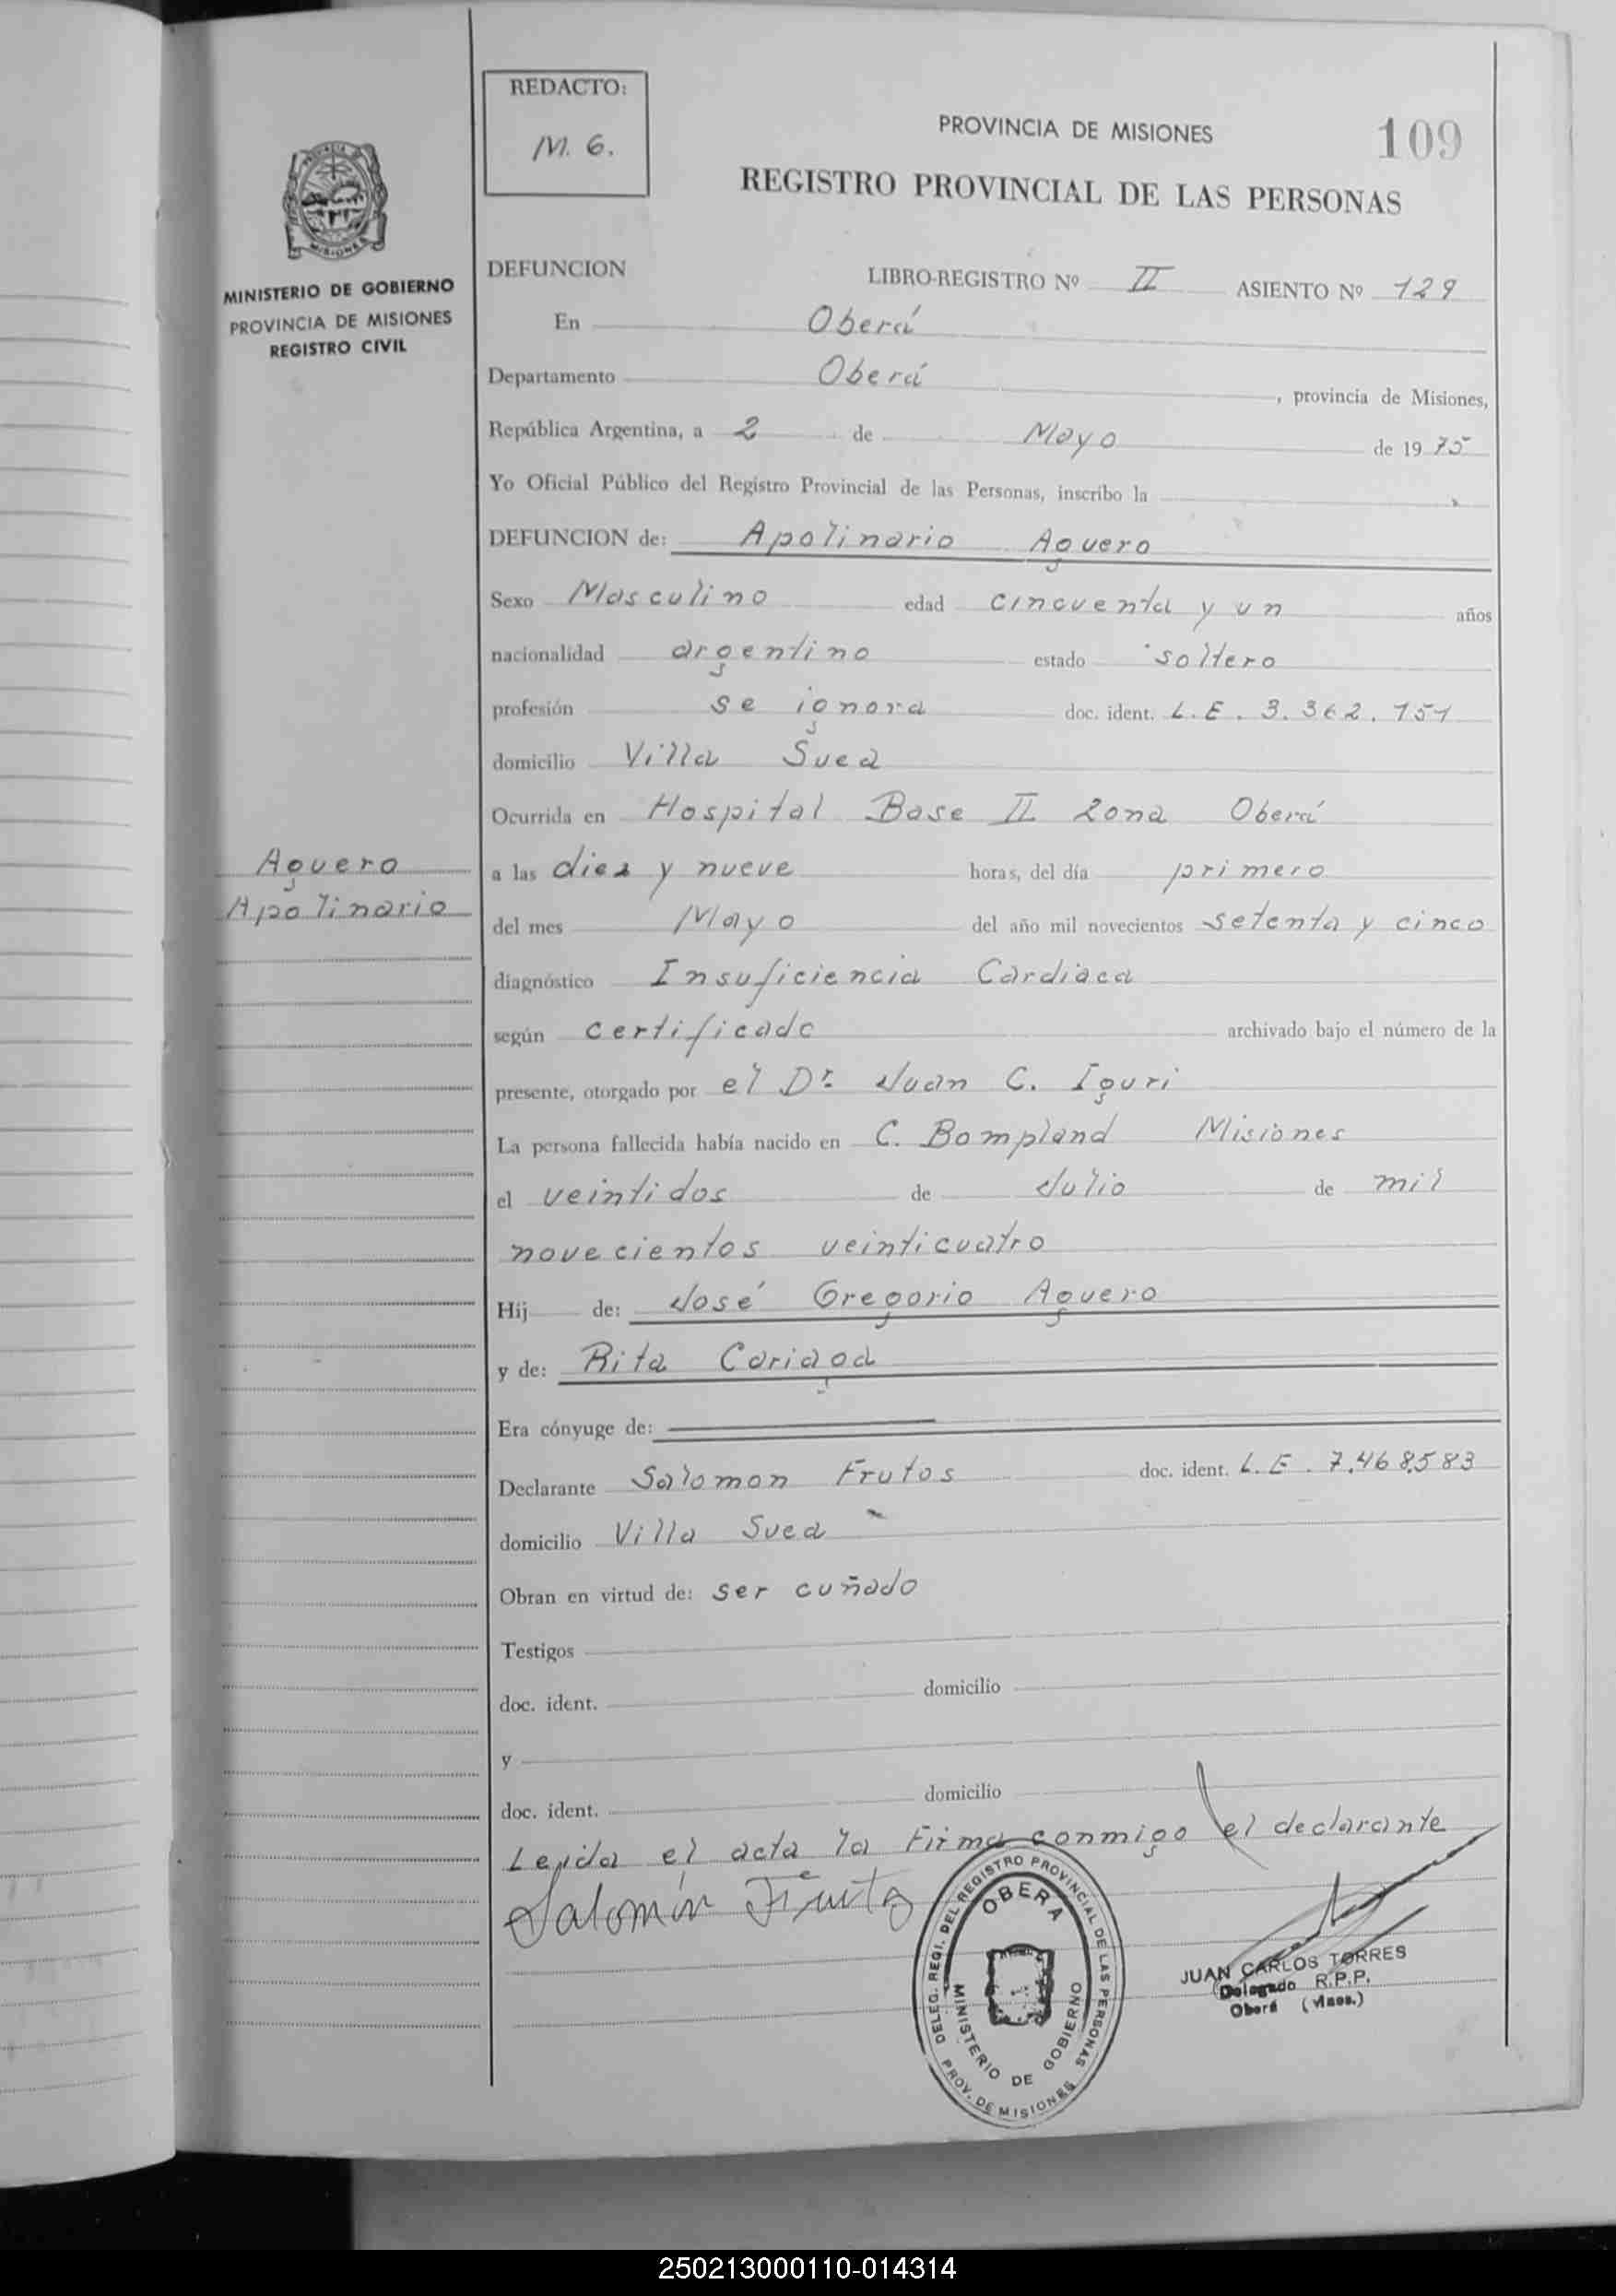 REDACTO:
M. G.
PROVINCIA DE MISIONES
109
REGISTRO PROVINCIAL DE LAS PERSONAS
MINISTERIO DE GOBIERNO
PROVINCIA DE MISIONES
REGISTRO CIVIL
DEFUNCION LIBRO-REGISTRO Nº II ASIENTO Nº 129
En Oberá
Departamento Oberá, provincia de Misiones,
República Argentina, a 2 de Mayo de 1975
Yo Oficial Público del Registro Provincial de las Personas, inscribo la
DEFUNCION de: Apolinario Aguero
Sexo Masculino edad cincuenta y un años
nacionalidad argentino estado soltero
profesión se ignora doc. ident. L.E. 3.362.151
domicilio Villa Suea
Ocurrida en Hospital Base II Zona Oberá
Aguero
Apolinario
a las diez y nueve horas, del día primero
del mes Mayo del año mil novecientos setenta y cinco
diagnóstico Insuficiencia Cardiaca
según certificado archivado bajo el número de la
presente, otorgado por el Dr. Juan C. Iguri
La persona fallecida había nacido en C. Bompland Misiones
el veintidos de Julio de mil
novecientos veinticuatro
Hij de: José Gregorio Aguero
y de: Rita
Era cónyuge de:
Declarante Salomon Frutos doc. ident. L.E. 7.468.583
domicilio Villa Suea
Obran en virtud de: ser cuñado
Testigos
doc. ident. domicilio
y
doc. ident. domicilio
Leida el acta la Firma conmigo el declarante
Salomón Frutos
DELEG. REGI. DEL REGISTRO PROVINCIAL DE LAS PERSONAS
OBERA
MINISTERIO DE GOBIERNO
PROV. DE MISIONES
JUAN CARLOS TORRES
Delegado R.P.P.
Oberá (Mnes.)
250213000110-014314